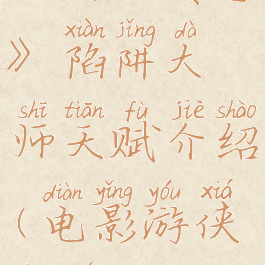 xiàn jǐng dà
》陷阱大
shī tiān fù jiè shào
师天赋介绍
diàn yǐng yóu xiá
(电影游侠